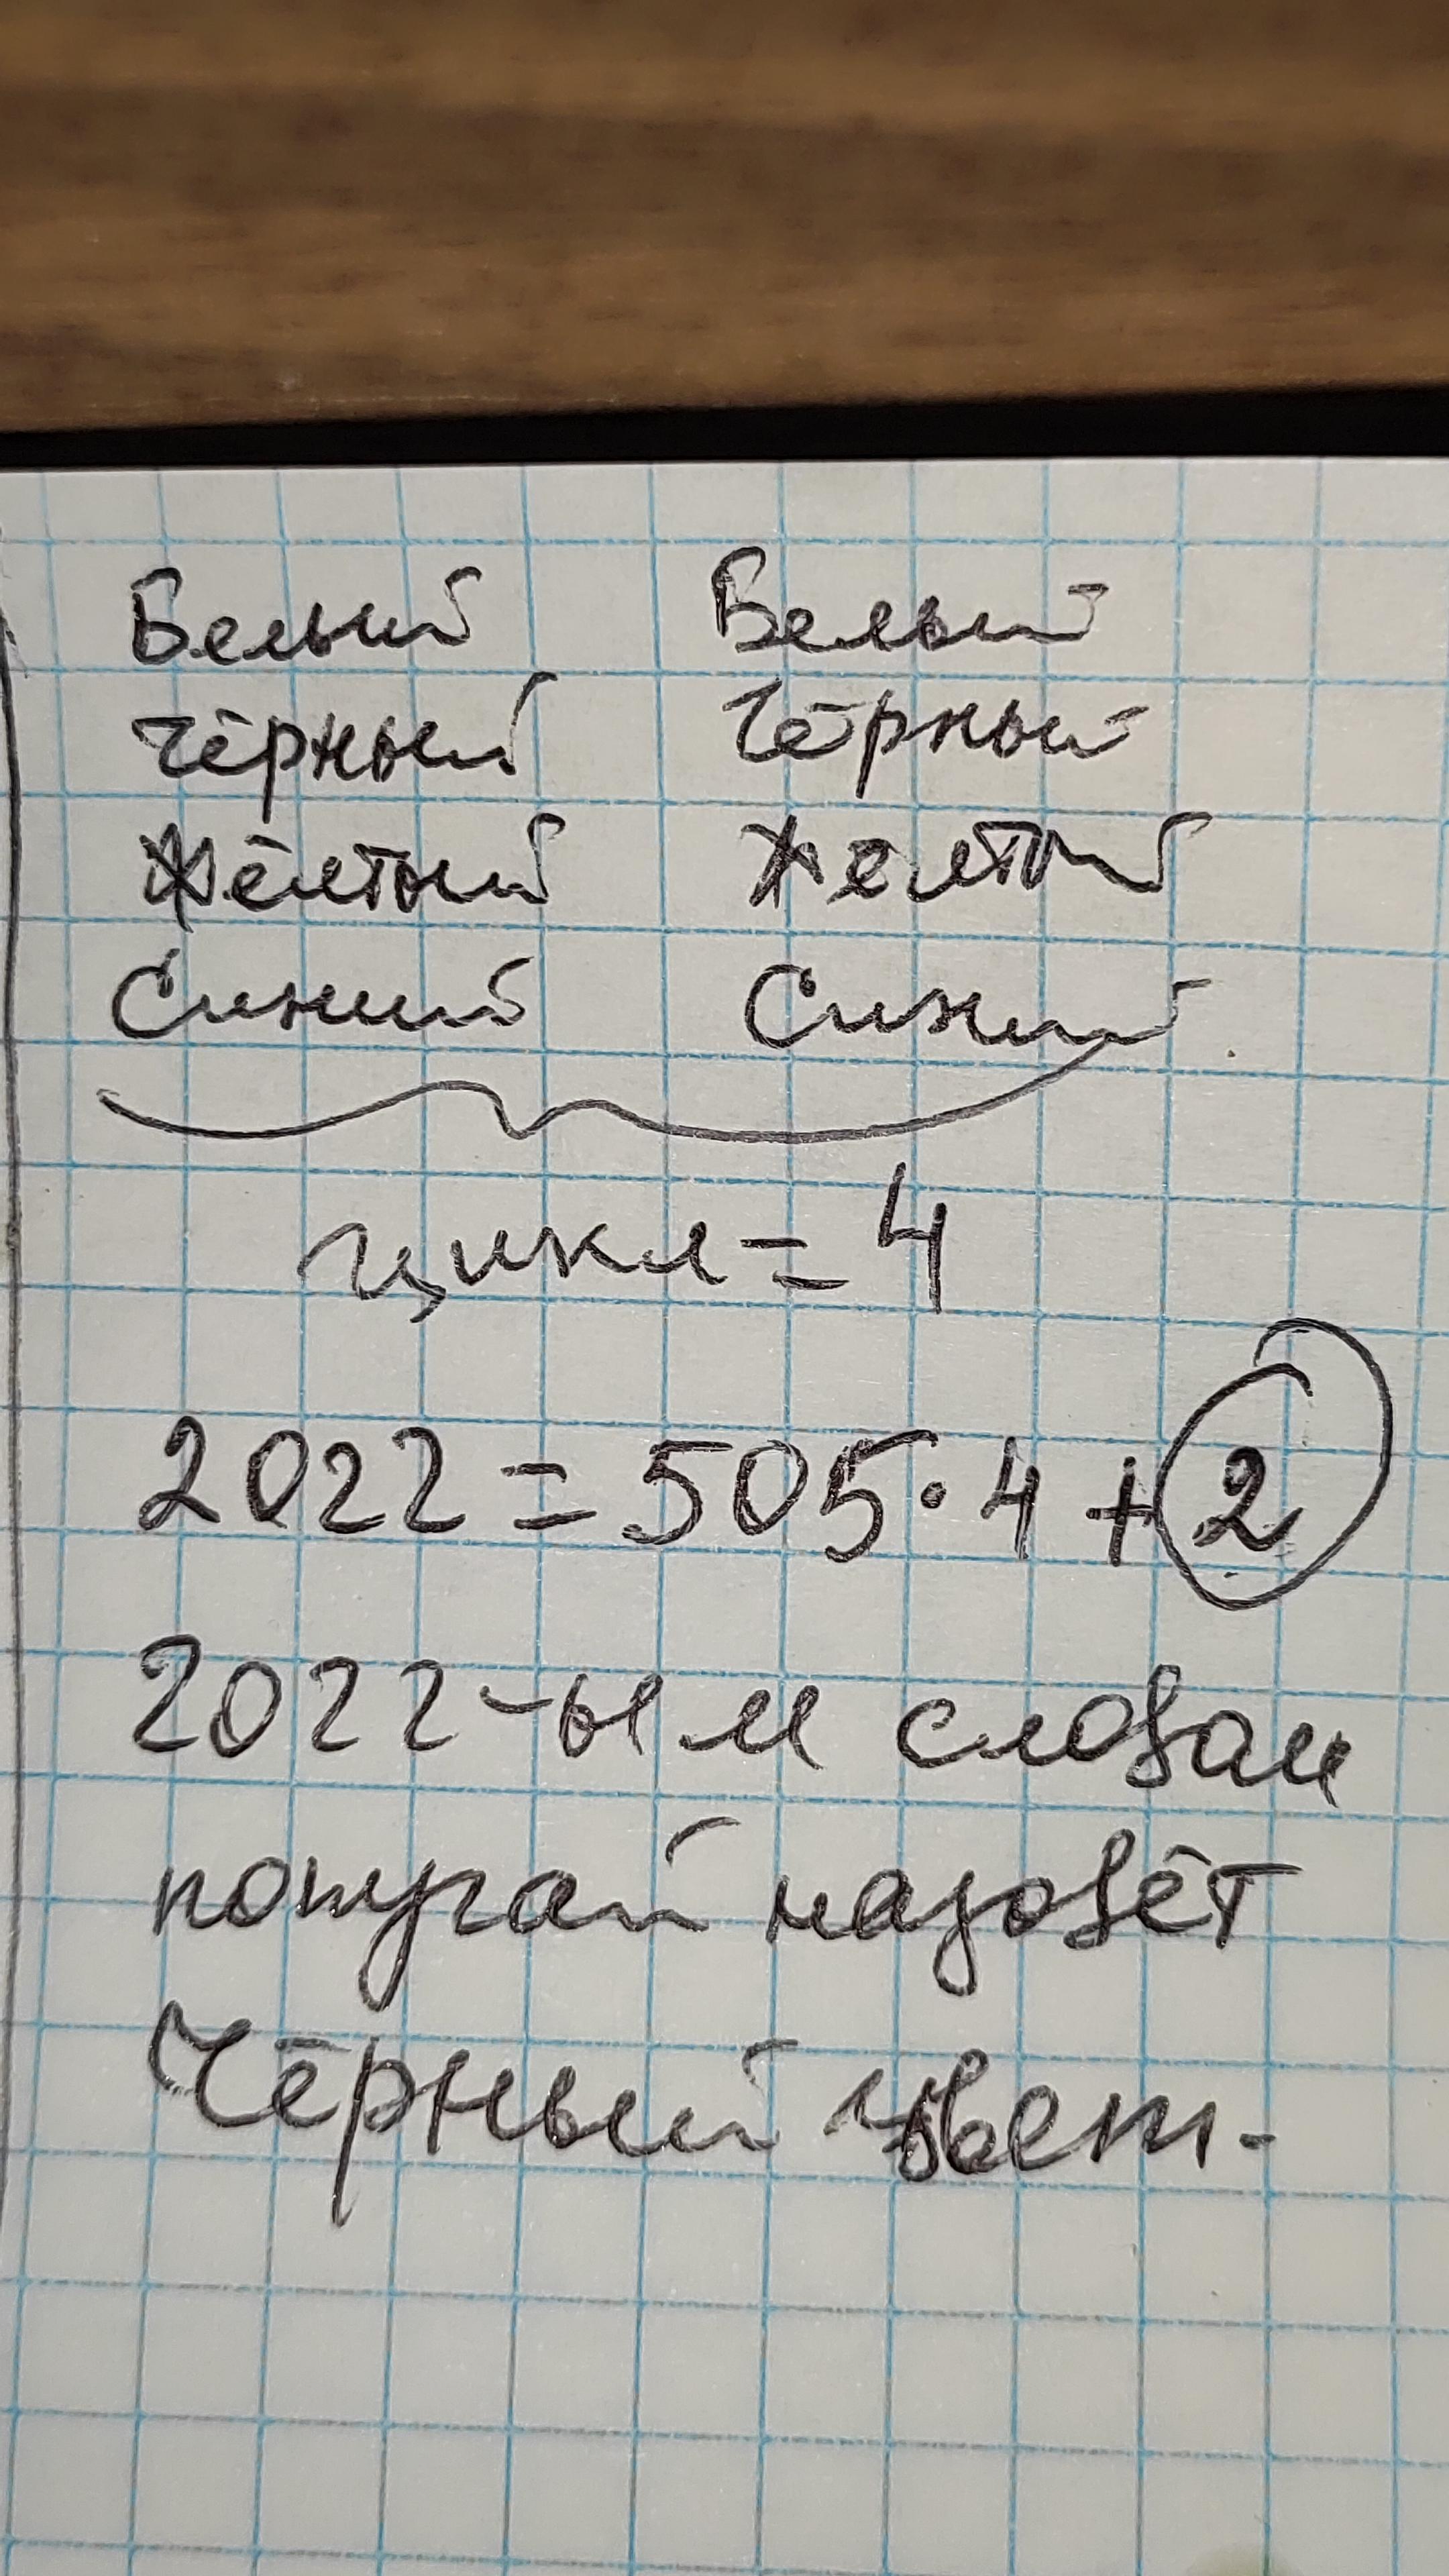 Белый Белый
Чёрный Чёрный
Жёлтый Желтый
Синий Синий
цикл = 4
2022 = 505·4 + 2
2022-ым словом
попугай назовёт
Чёрный цвет.